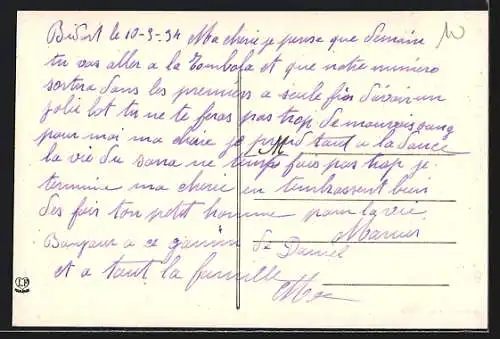 Bidart le 10-3-34 Ma cherie je pense que demain
tu vas aller a la Tombola et que notre numéro
sortira dans les premiers a seule fin d'avoir un
jolie lot tu ne te feras pas trop de mauvais sang
pour moi ma cherie je pense tout a la douce
la vie du sana ne fais pas trop je
termine ma cherie en t'embrassant bien
des fois ton petit homme pour la vie
Marius
Bonjour a ce gamin de Daniel
et a tout la famille